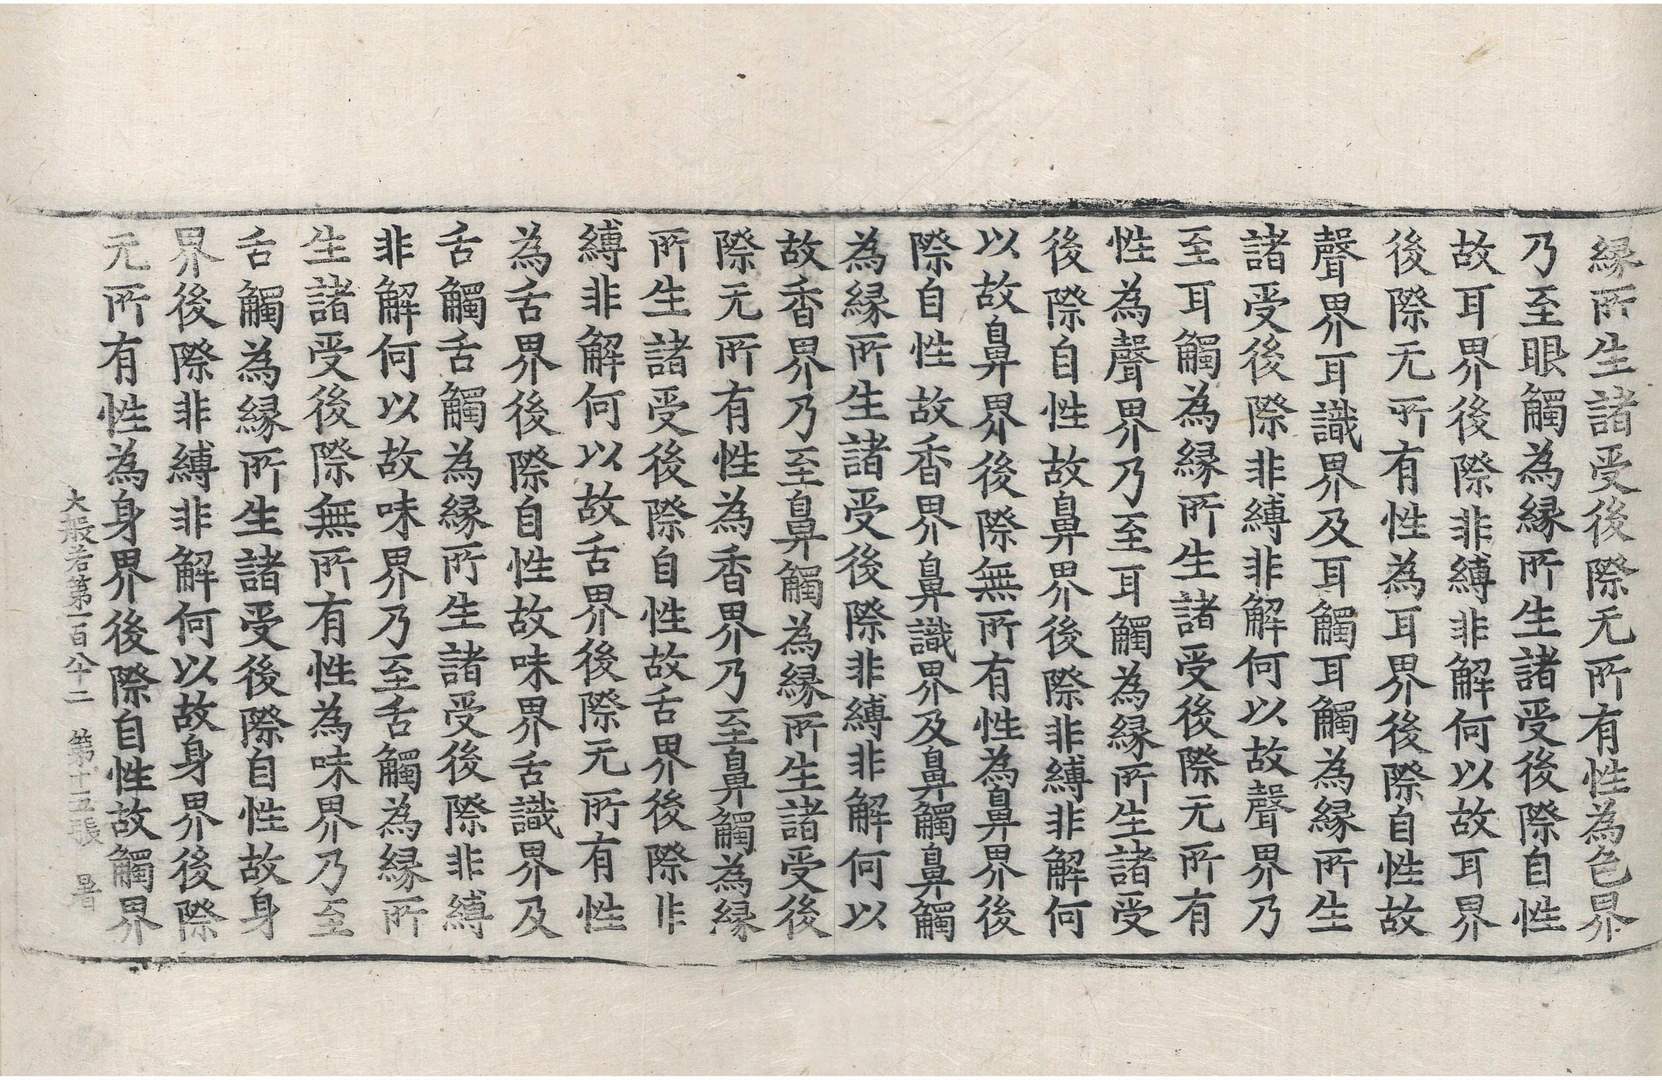 縁所生諸受後際无所有性為色界
乃至眼觸為縁所生諸受後際自性
故耳界後際非縛非解何以故耳界
後際无所有性為耳界後際自性故
聲界耳識界及耳觸耳觸為縁所生
諸受後際非縛非解何以故聲界乃
至耳觸為縁所生諸受後際无所有
性為聲界乃至耳觸為縁所生諸受
後際自性故鼻界後際非縛非解何
以故鼻界後際無所有性為鼻界後
際自性故香界鼻識界及鼻觸鼻觸
為縁所生諸受後際非縛非解何以
故香界乃至鼻觸為縁所生諸受後
際无所有性為香界乃至鼻觸為縁
所生諸受後際自性故舌界後際非
縛非解何以故舌界後際无所有性
為舌界後際自性故味界舌識界及
舌觸舌觸為縁所生諸受後際非縛
非解何以故味界乃至舌觸為縁所
生諸受後際無所有性為味界乃至
舌觸為縁所生諸受後際自性故身
界後際非縛非解何以故身界後際
无所有性為身界後際自性故觸界
大般若第一百八十二　第十五張　暑